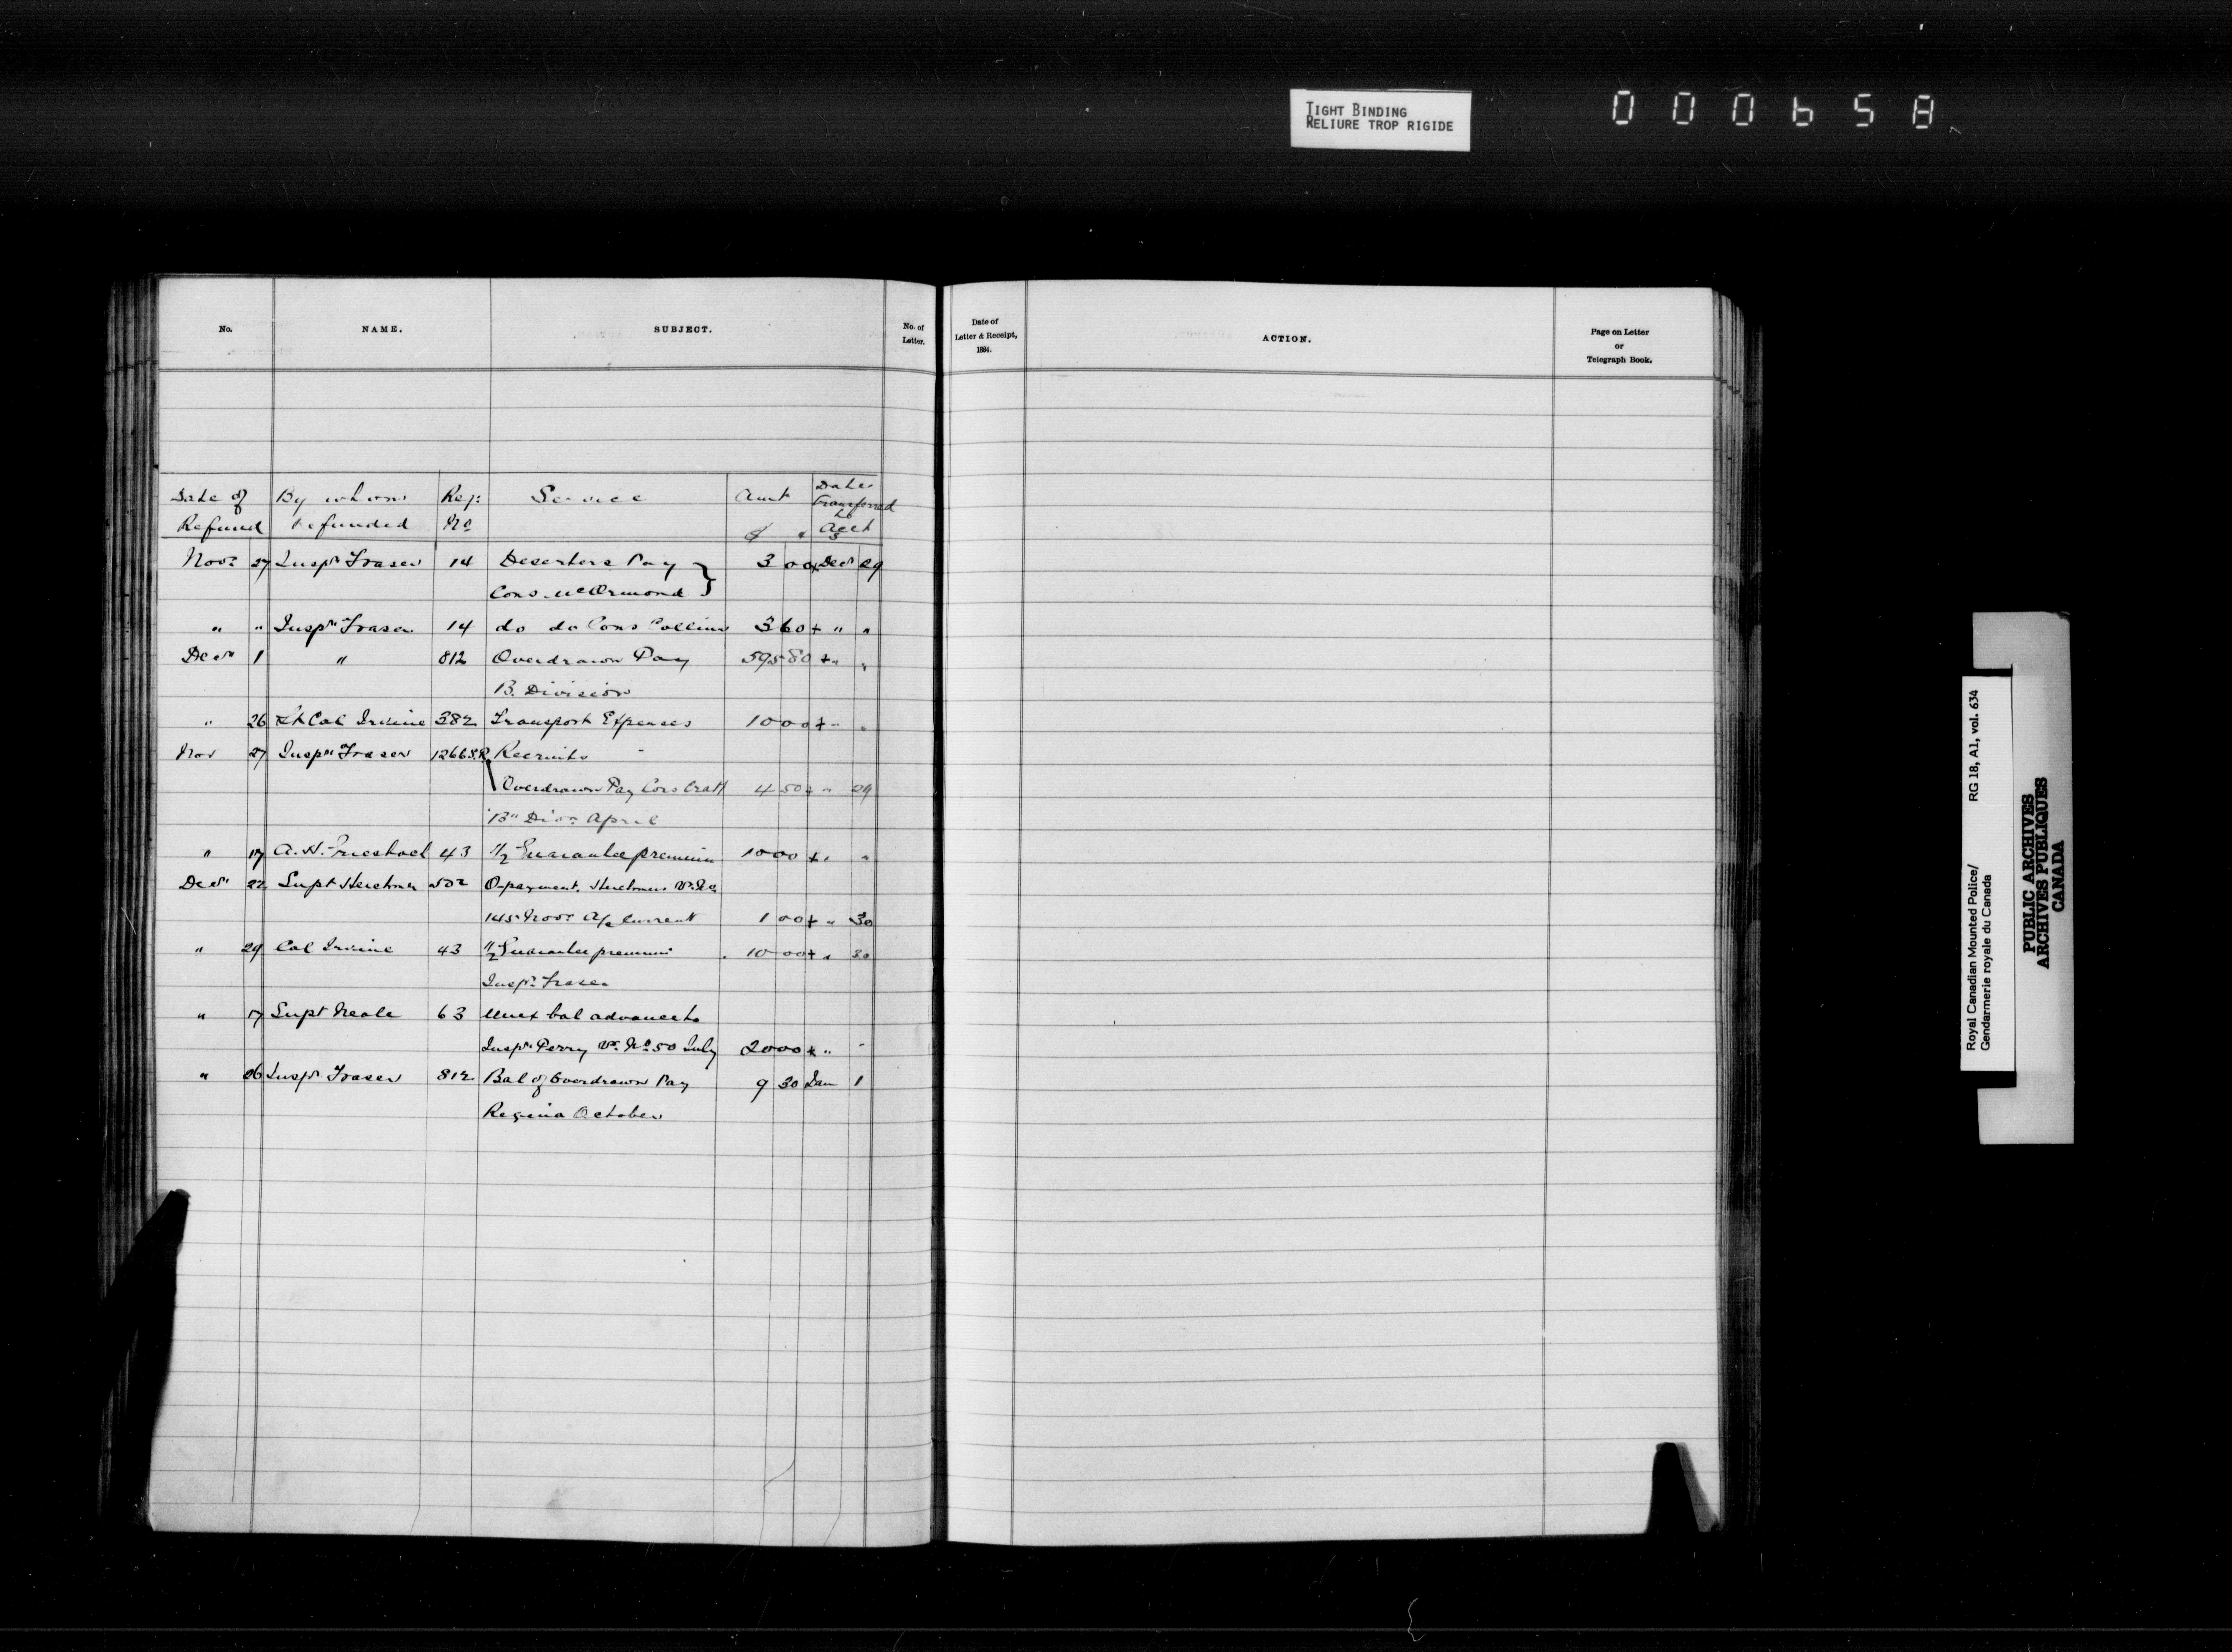 TIGHT BINDING
RELIURE TROP RIGIDE
000658
No. NAME. SUBJECT. No. of Letter.
Date of Letter & Receipt, 1884. ACTION. Page on Letter or Telegraph Book.
Date of By whom Reg: Service Amt Date
Refund refunded No $ transferred to Acct
Novr 27 Inspr Fraser 14 Deserters Pay 3 00 x Decr 29
Cons. McOrmond
" " Inspr Fraser 14 do do Cons Collins 3 60 + " "
Decr 1 " 812 Overdrawn Pay 595 80 + " "
B. Division
" 26 Lt Col Irvine 382 Transport Expenses 10 00 + " "
Nov 27 Inspr Fraser 1266 S.R. Recruits
Overdrawn Pay Cons 4 50 + " 29
"B" Divn April
" 17 A. H. 43 1/2 Guarantee premium 10 00 + " "
Decr 22 Supt Herchmer 502 O-payment. Herchmer
145 Novr A/c Current 1 00 + " 30
" 29 Col Irvine 43 1/2 Guarantee premium 10 00 + " 30
Inspr Fraser
" 17 Supt Neale 63 Unex bal advance to
Inspr Perry Vr. No 50 July 20 00 + " "
" 26 Inspr Fraser 812 Bal of Overdrawn Pay 9 30 Jan 1
Regina October
Royal Canadian Mounted Police/ RG 18, A1, vol. 634
Gendarmerie royale du Canada
PUBLIC ARCHIVES
ARCHIVES PUBLIQUES
CANADA